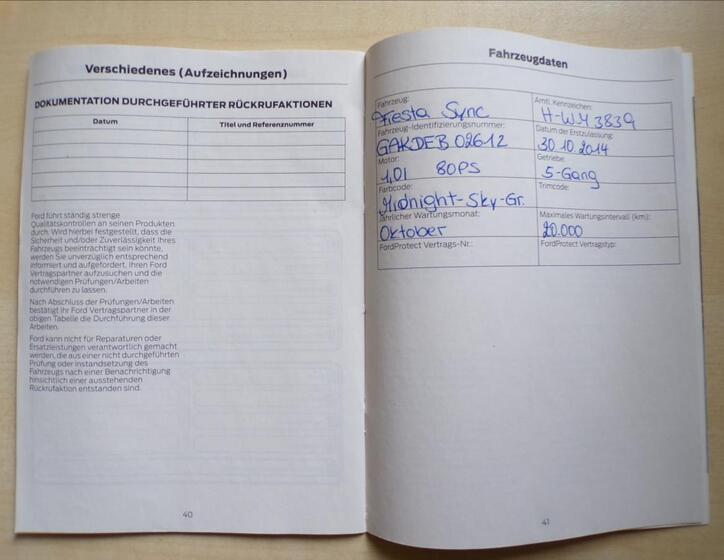 Verschiedenes (Aufzeichnungen)
DOKUMENTATION DURCHGEFÜHRTER RÜCKRUFAKTIONEN
Datum
Titel und Referenznummer
Ford führt ständig strenge
Qualitätskontrollen an seinen Produkten
durch. Wird hierbei festgestellt, dass die
Sicherheit und/oder Zuverlässigkeit Ihres
Fahrzeugs beeinträchtigt sein könnte,
werden Sie unverzüglich entsprechend
informiert und aufgefordert, Ihren Ford
Vertragspartner aufzusuchen und die
notwendigen Prüfungen/Arbeiten
durchführen zu lassen.
Nach Abschluss der Prüfungen/Arbeiten
bestätigt Ihr Ford Vertragspartner in der
obigen Tabelle die Durchführung dieser
Arbeiten.
Ford kann nicht für Reparaturen oder
Ersatzleistungen verantwortlich gemacht
werden, die aus einer nicht durchgeführten
Prüfung oder Instandsetzung des
Fahrzeugs nach einer Benachrichtigung
hinsichtlich einer ausstehenden
Rückrufaktion entstanden sind.
40
Fahrzeugdaten
Fahrzeug:
Fiesta Sync
Amtl. Kennzeichen:
H-WY 3839
Fahrzeug-Identifizierungsnummer:
GAKDEB 02612
Datum der Erstzulassung:
30.10.2014
Motor:
1,0l 80PS
Getriebe:
5-Gang
Farbcode:
Midnight-Sky-Gr.
Trimcode:
Jährlicher Wartungsmonat:
Oktober
Maximales Wartungsintervall (km):
20.000
FordProtect Vertrags-Nr.:
FordProtect Vertragstyp:
41